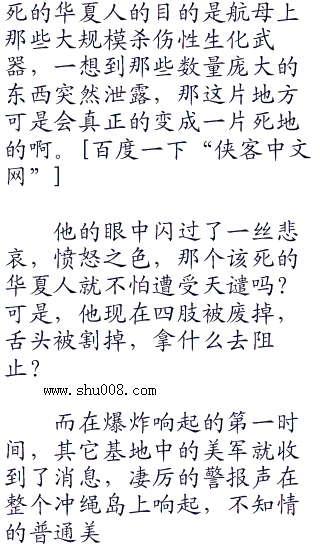 死的华夏人的目的是航母上
那些大规模杀伤性生化武
器，一想到那些数量庞大的
东西突然泄露，那这片地方
可是会真正的变成一片死地
的啊。[百度一下“侠客中文
网”]
他的眼中闪过了一丝悲
哀，愤怒之色，那个该死的
华夏人就不怕遭受天谴吗？
可是，他现在四肢被废掉，
舌头被割掉，拿什么去阻
止？
www.shu008.com
而在爆炸响起的第一时
间，其它基地中的美军就收
到了消息，凄厉的警报声在
整个冲绳岛上响起，不知情
的普通美